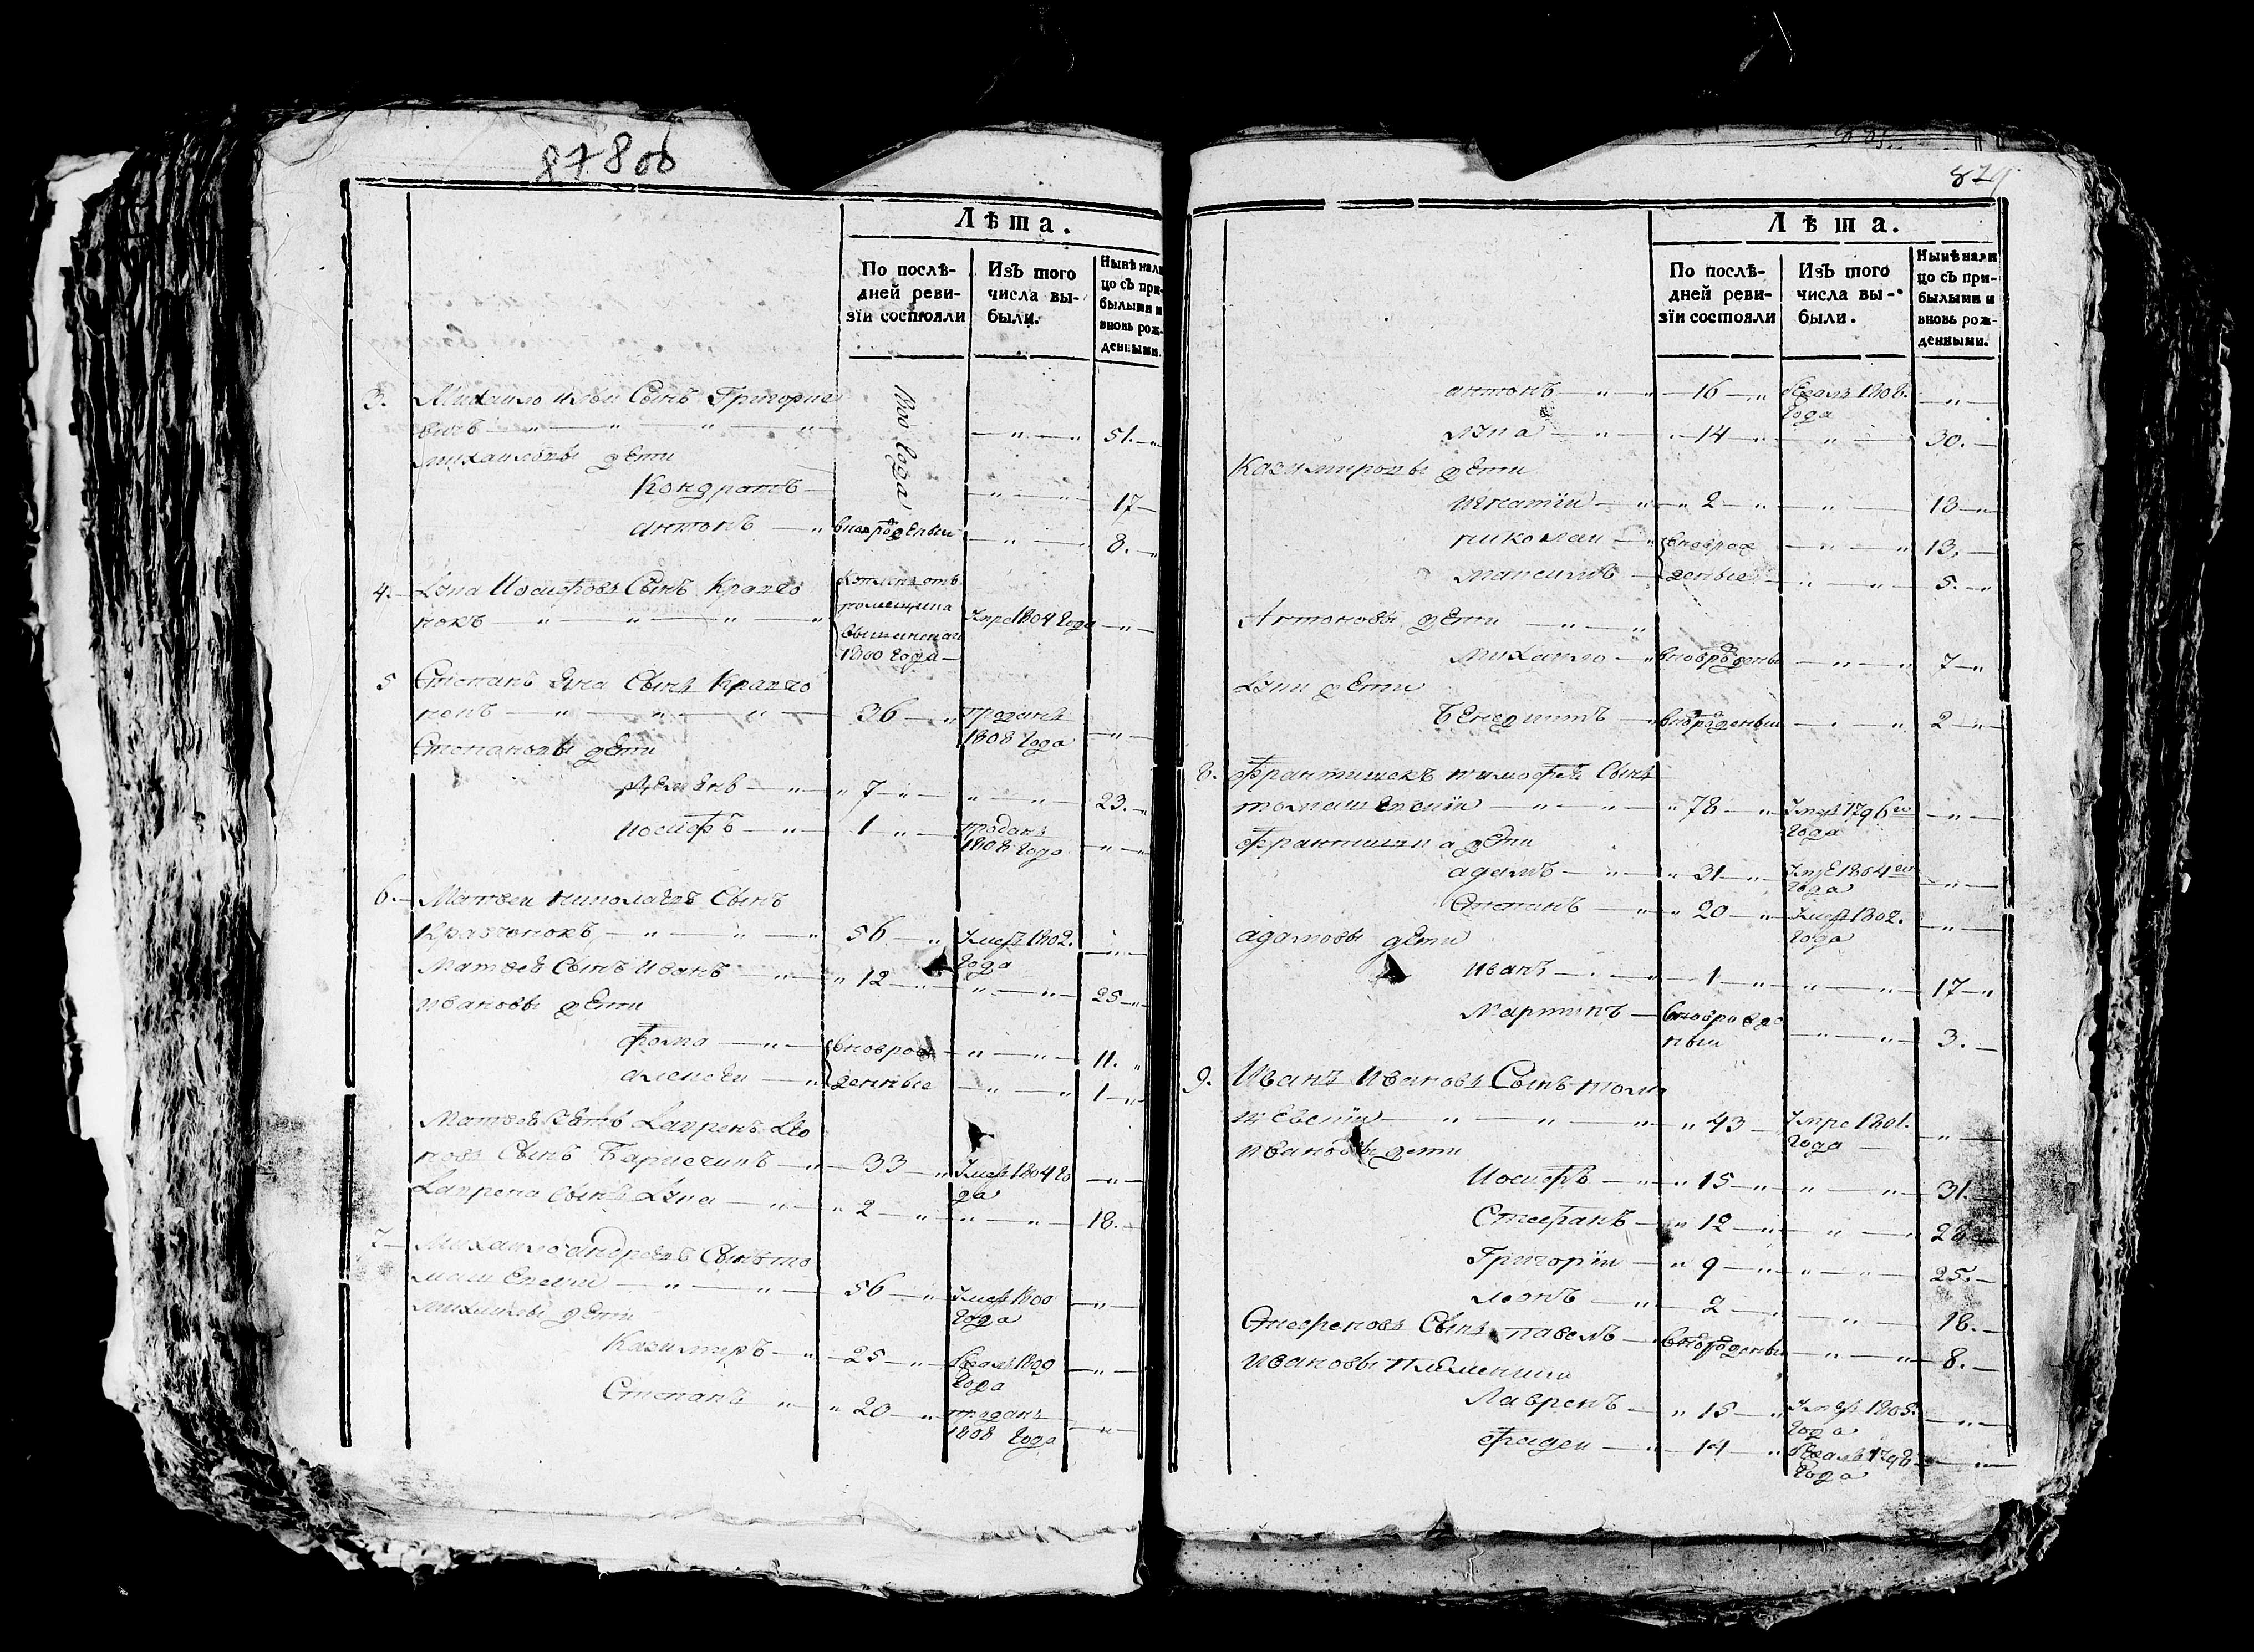 878об
Лѣта.
По послѣ-
дней реви-
зіи состояли
Изъ того
числа вы-
были.
Нынѣ нали
цо съ при-
былыми и
вновь рож-
денными.
3. Михаило Ильи Сынъ Григорие
вичъ — 51.
1800 года
Михаиловы дети
Кондратъ — 17
антонъ — вновърожденыи — 8.
4. Лука Иосифовъ Сынъ Кравчо
нокъ — помещика
1800 года — Умре 1804 года
5 Степанъ Яна Сынъ Кравчо
нокъ — 36 — проданъ
1808 года
Степановы дети
Демянъ — 7 — 23.
Иосифъ — 1 — проданъ
1808 года
6. Матвеи Николаевъ Сынъ
Кравчонокъ — 56 — Умеръ 1802.
года
Матвеевъ Сынъ Иванъ — 12 — 25
Ивановы дети
Фома — вноврож — 11.
алексеи — денные — 1
Матвеевъ зять Лавренъ Лео
новъ Сынъ — 33 — Умеръ 1804 го
да
Лаврена Сынъ Лука — 2 — 18.
7 Михаило андреевъ Сынъ то
машевский — 56 — Умеръ 1800
года
Михаиловы дети
Казимиръ — 25 — бежалъ 1809
года
Степанъ — 20 — проданъ
1808 года
879
Лѣта.
По послѣ-
дней реви-
зіи состояли
Изъ того
числа вы-
были.
Нынѣ нали
цо съ при-
былыми и
вновь рож-
денными.
антонъ — 16 — бежалъ 1808.
года
лука — 14 — 30.
Казимировы дети
игнатіи — 2 — 18
николаи — вноврож — 13.
максимъ — денные — 5.
Антоновы дети
михаило — вноврожденые — 7
Луки дети
Бенедиктъ — вноврожденыи — 2
8. Франтишекъ тимофея Сынъ
томашевскіи — 78 — Умеръ 1796го
года
Франтишка дети
адамъ — 31 — Умре 1804го
года
Степанъ — 20 — Умеръ 1802.
года
адамовы дети
иванъ — 1 — 17
мартинъ — вноврожде
ныи — 3.
9. Иванъ Ивановъ Сынъ тома
шевскіи — 43 — Умре 1801.
года
ивановы дети
Иосифъ — 15 — 31.
Стефанъ — 12 — 28
Григоріи — 9 — 25.
леонъ — 2 — 18.
Стефановъ Сынъ павелъ — вноврожденыи — 8.
ивановы племеники
Лавренъ — 15 — Умеръ 1805.
года
Фадеи — 14 — бежалъ 1798
года